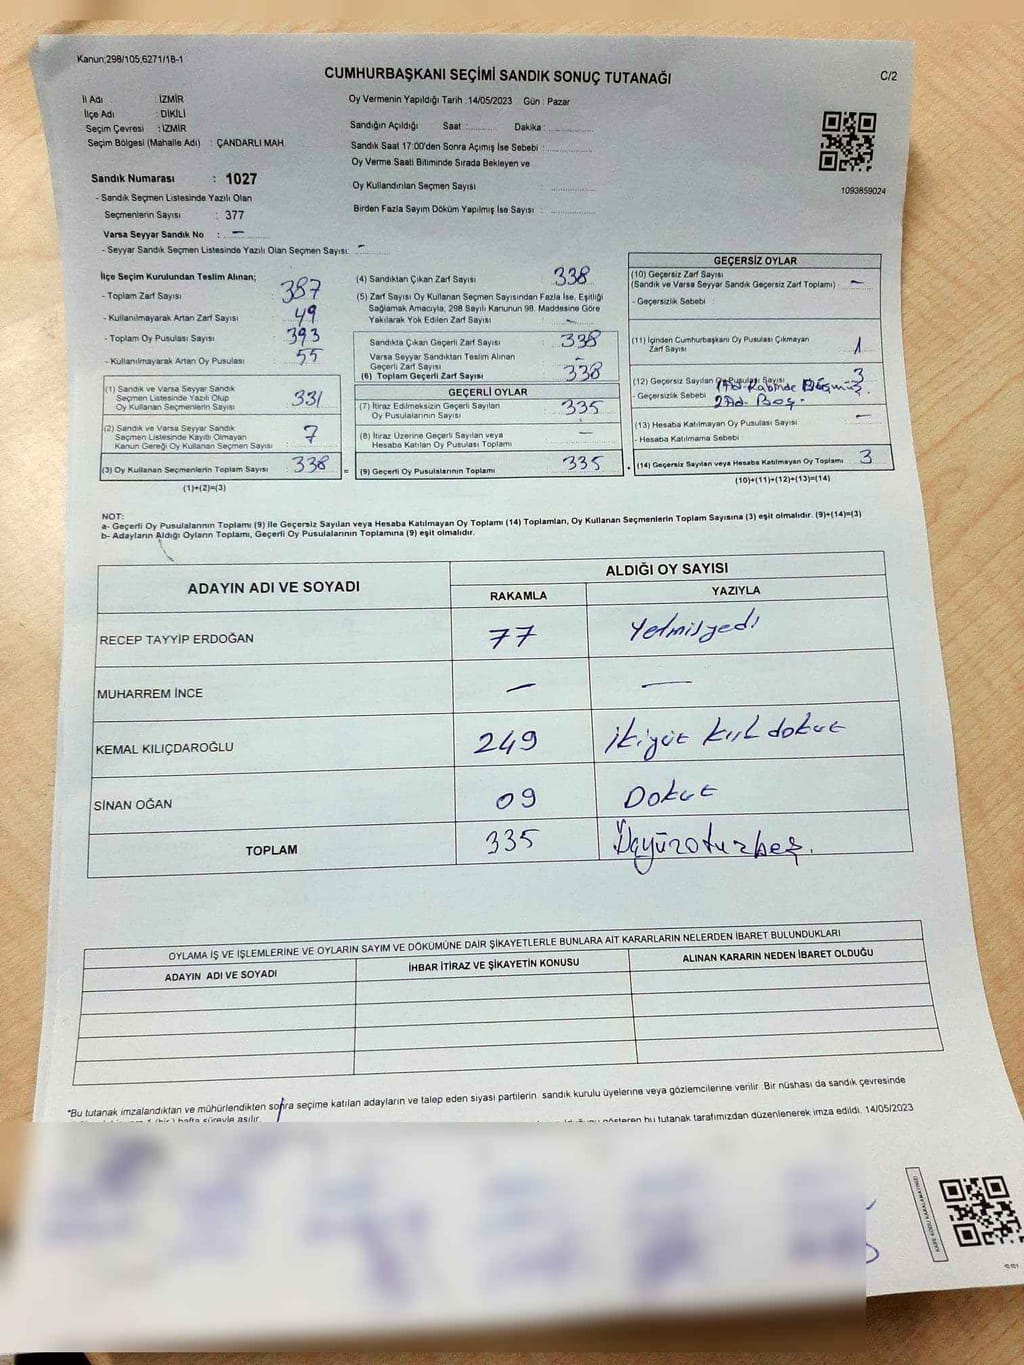 Kanun;298/105,6271/18-1
CUMHURBAŞKANI SEÇİMİ SANDIK SONUÇ TUTANAĞI
C/2
İl Adı : İZMİR
İlçe Adı : DİKİLİ
Seçim Çevresi : İZMİR
Seçim Bölgesi (Mahalle Adı) : ÇANDARLI MAH
Sandık Numarası : 1027
- Sandık Seçmen Listesinde Yazılı Olan
Seçmenlerin Sayısı : 377
Varsa Seyyar Sandık No : –
- Seyyar Sandık Seçmen Listesinde Yazılı Olan Seçmen Sayısı: –
Oy Vermenin Yapıldığı Tarih :14/05/2023 Gün : Pazar
Sandığın Açıldığı Saat :.......... Dakika :..............
Sandık Saat 17:00'den Sonra Açımış İse Sebebi :..............
Oy Verme Saati Bitiminde Sırada Bekleyen ve
Oy Kullandırılan Seçmen Sayısı :..............
Birden Fazla Sayım Döküm Yapılmış İse Sayısı :..............
1093859024
İlçe Seçim Kurulundan Teslim Alınan;
- Toplam Zarf Sayısı 387
- Kullanılmayarak Artan Zarf Sayısı 49
- Toplam Oy Pusulası Sayısı 393
- Kullanılmayarak Artan Oy Pusulası 55
(1) Sandık ve Varsa Seyyar Sandık
Seçmen Listesinde Yazılı Olup
Oy Kullanan Seçmenlerin Sayısı 331
(2) Sandık ve Varsa Seyyar Sandık
Seçmen Listesinde Kayıtlı Olmayan
Kanun Gereği Oy Kullanan Seçmen Sayısı 7
(3) Oy Kullanan Seçmenlerin Toplam Sayısı : 338 =
(1)+(2)=(3)
(4) Sandıktan Çıkan Zarf Sayısı : 338
(5) Zarf Sayısı Oy Kullanan Seçmen Sayısından Fazla İse, Eşitliği
Sağlamak Amacıyla; 298 Sayılı Kanunun 98. Maddesine Göre
Yakılarak Yok Edilen Zarf Sayısı : –
Sandıkta Çıkan Geçerli Zarf Sayısı : 338
Varsa Seyyar Sandıktan Teslim Alınan
Geçerli Zarf Sayısı : –
(6) Toplam Geçerli Zarf Sayısı : 338
GEÇERLİ OYLAR
(7) İtiraz Edilmeksizin Geçerli Sayılan
Oy Pusulalarının Sayısı : 335
(8) İtiraz Üzerine Geçerli Sayılan veya
Hesaba Katılan Oy Pusulası Toplamı : –
(9) Geçerli Oy Pusulalarının Toplamı : 335
GEÇERSİZ OYLAR
(10) Geçersiz Zarf Sayısı
(Sandık ve Varsa Seyyar Sandık Geçersiz Zarf Toplamı) : –
- Geçersizlik Sebebi :
(11) İçinden Cumhurbaşkanı Oy Pusulası Çıkmayan
Zarf Sayısı 1
(12) Geçersiz Sayılan Oy Pusulası Sayısı 3
- Geçersizlik Sebebi 2 Ad. Boş.
(13) Hesaba Katılmayan Oy Pusulası Sayısı –
- Hesaba Katılmama Sebebi
(14) Geçersiz Sayılan veya Hesaba Katılmayan Oy Toplamı : 3
(10)+(11)+(12)+(13)=(14)
NOT:
a- Geçerli Oy Pusulalarının Toplamı (9) ile Geçersiz Sayılan veya Hesaba Katılmayan Oy Toplamı (14) Toplamları, Oy Kullanan Seçmenlerin Toplam Sayısına (3) eşit olmalıdır. (9)+(14)=(3)
b- Adayların Aldığı Oyların Toplamı, Geçerli Oy Pusulalarının Toplamına (9) eşit olmalıdır.
ADAYIN ADI VE SOYADI
ALDIĞI OY SAYISI
RAKAMLA YAZIYLA
RECEP TAYYİP ERDOĞAN 77 Yetmişyedi
MUHARREM İNCE – –
KEMAL KILIÇDAROĞLU 249 ikiyüz kırk dokuz
SİNAN OĞAN 09 Dokuz
TOPLAM 335 Üçyüzotuzbeş.
OYLAMA İŞ VE İŞLEMLERİNE VE OYLARIN SAYIM VE DÖKÜMÜNE DAİR ŞİKAYETLERLE BUNLARA AİT KARARLARIN NELERDEN İBARET BULUNDUKLARI
ADAYIN ADI VE SOYADI İHBAR İTİRAZ VE ŞİKAYETİN KONUSU ALINAN KARARIN NEDEN İBARET OLDUĞU
*Bu tutanak imzalandıktan ve mühürlendikten sonra seçime katılan adayların ve talep eden siyasi partilerin sandık kurulu üyelerine veya gözlemcilerine verilir. Bir nüshası da sandık çevresinde
hafta süreyle asılır. gösteren bu tutanak tarafımızdan düzenlenerek imza edildi. 14/05/2023